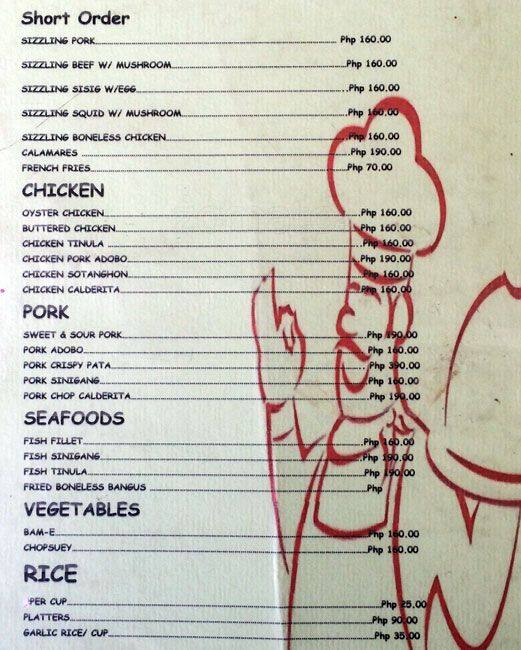 Short Order
SIZZLING PORK Php 160.00
SIZZLING BEEF W/ MUSHROOM Php 160.00
SIZZLING SISIG W/EGG Php 160.00
SIZZLING SQUID W/ MUSHROOM Php 160.00
SIZZLING BONELESS CHICKEN Php 160.00
CALAMARES Php 190.00
FRENCH FRIES Php 70.00
CHICKEN
OYSTER CHICKEN Php 160.00
BUTTERED CHICKEN Php 160.00
CHICKEN TINULA Php 160.00
CHICKEN PORK ADOBO Php 190.00
CHICKEN SOTANGHON Php 160.00
CHICKEN CALDERITA Php 160.00
PORK
SWEET & SOUR PORK Php 190.00
PORK ADOBO Php 160.00
PORK CRISPY PATA Php 390.00
PORK SINIGANG Php 160.00
PORK CHOP CALDERITA Php 190.00
SEAFOODS
FISH FILLET Php 160.00
FISH SINIGANG Php 190.00
FISH TINULA Php 190.00
FRIED BONELESS BANGUS Php
VEGETABLES
BAM-E Php 160.00
CHOPSUEY Php 160.00
RICE
PER CUP Php 25.00
PLATTERS Php 90.00
GARLIC RICE/ CUP Php 35.00